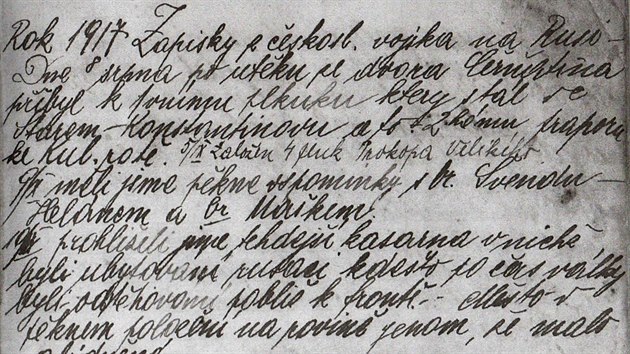 Rok 1917 Zapisky z českosl. vojska na Rusi –
Dne 8 srpna po utěku ze dvora
přibyl k svimu plkuku ktery stál ve
Starem-Konstantinovu a to k 2 kómu praporu
ke Kul. rotě. založen 4 pluk Prokopa Velikeho
měli jsme pěkne vspominky s br. Svendou
Helánem a Br Mařkem
prohliželi jsme zdejši kasarna v nichž
byli ubytovani rusaci kdežto po čas války
byli odtěhovani pobliž k frontě – Město v
pěknem položeni na povine jenom, že malo